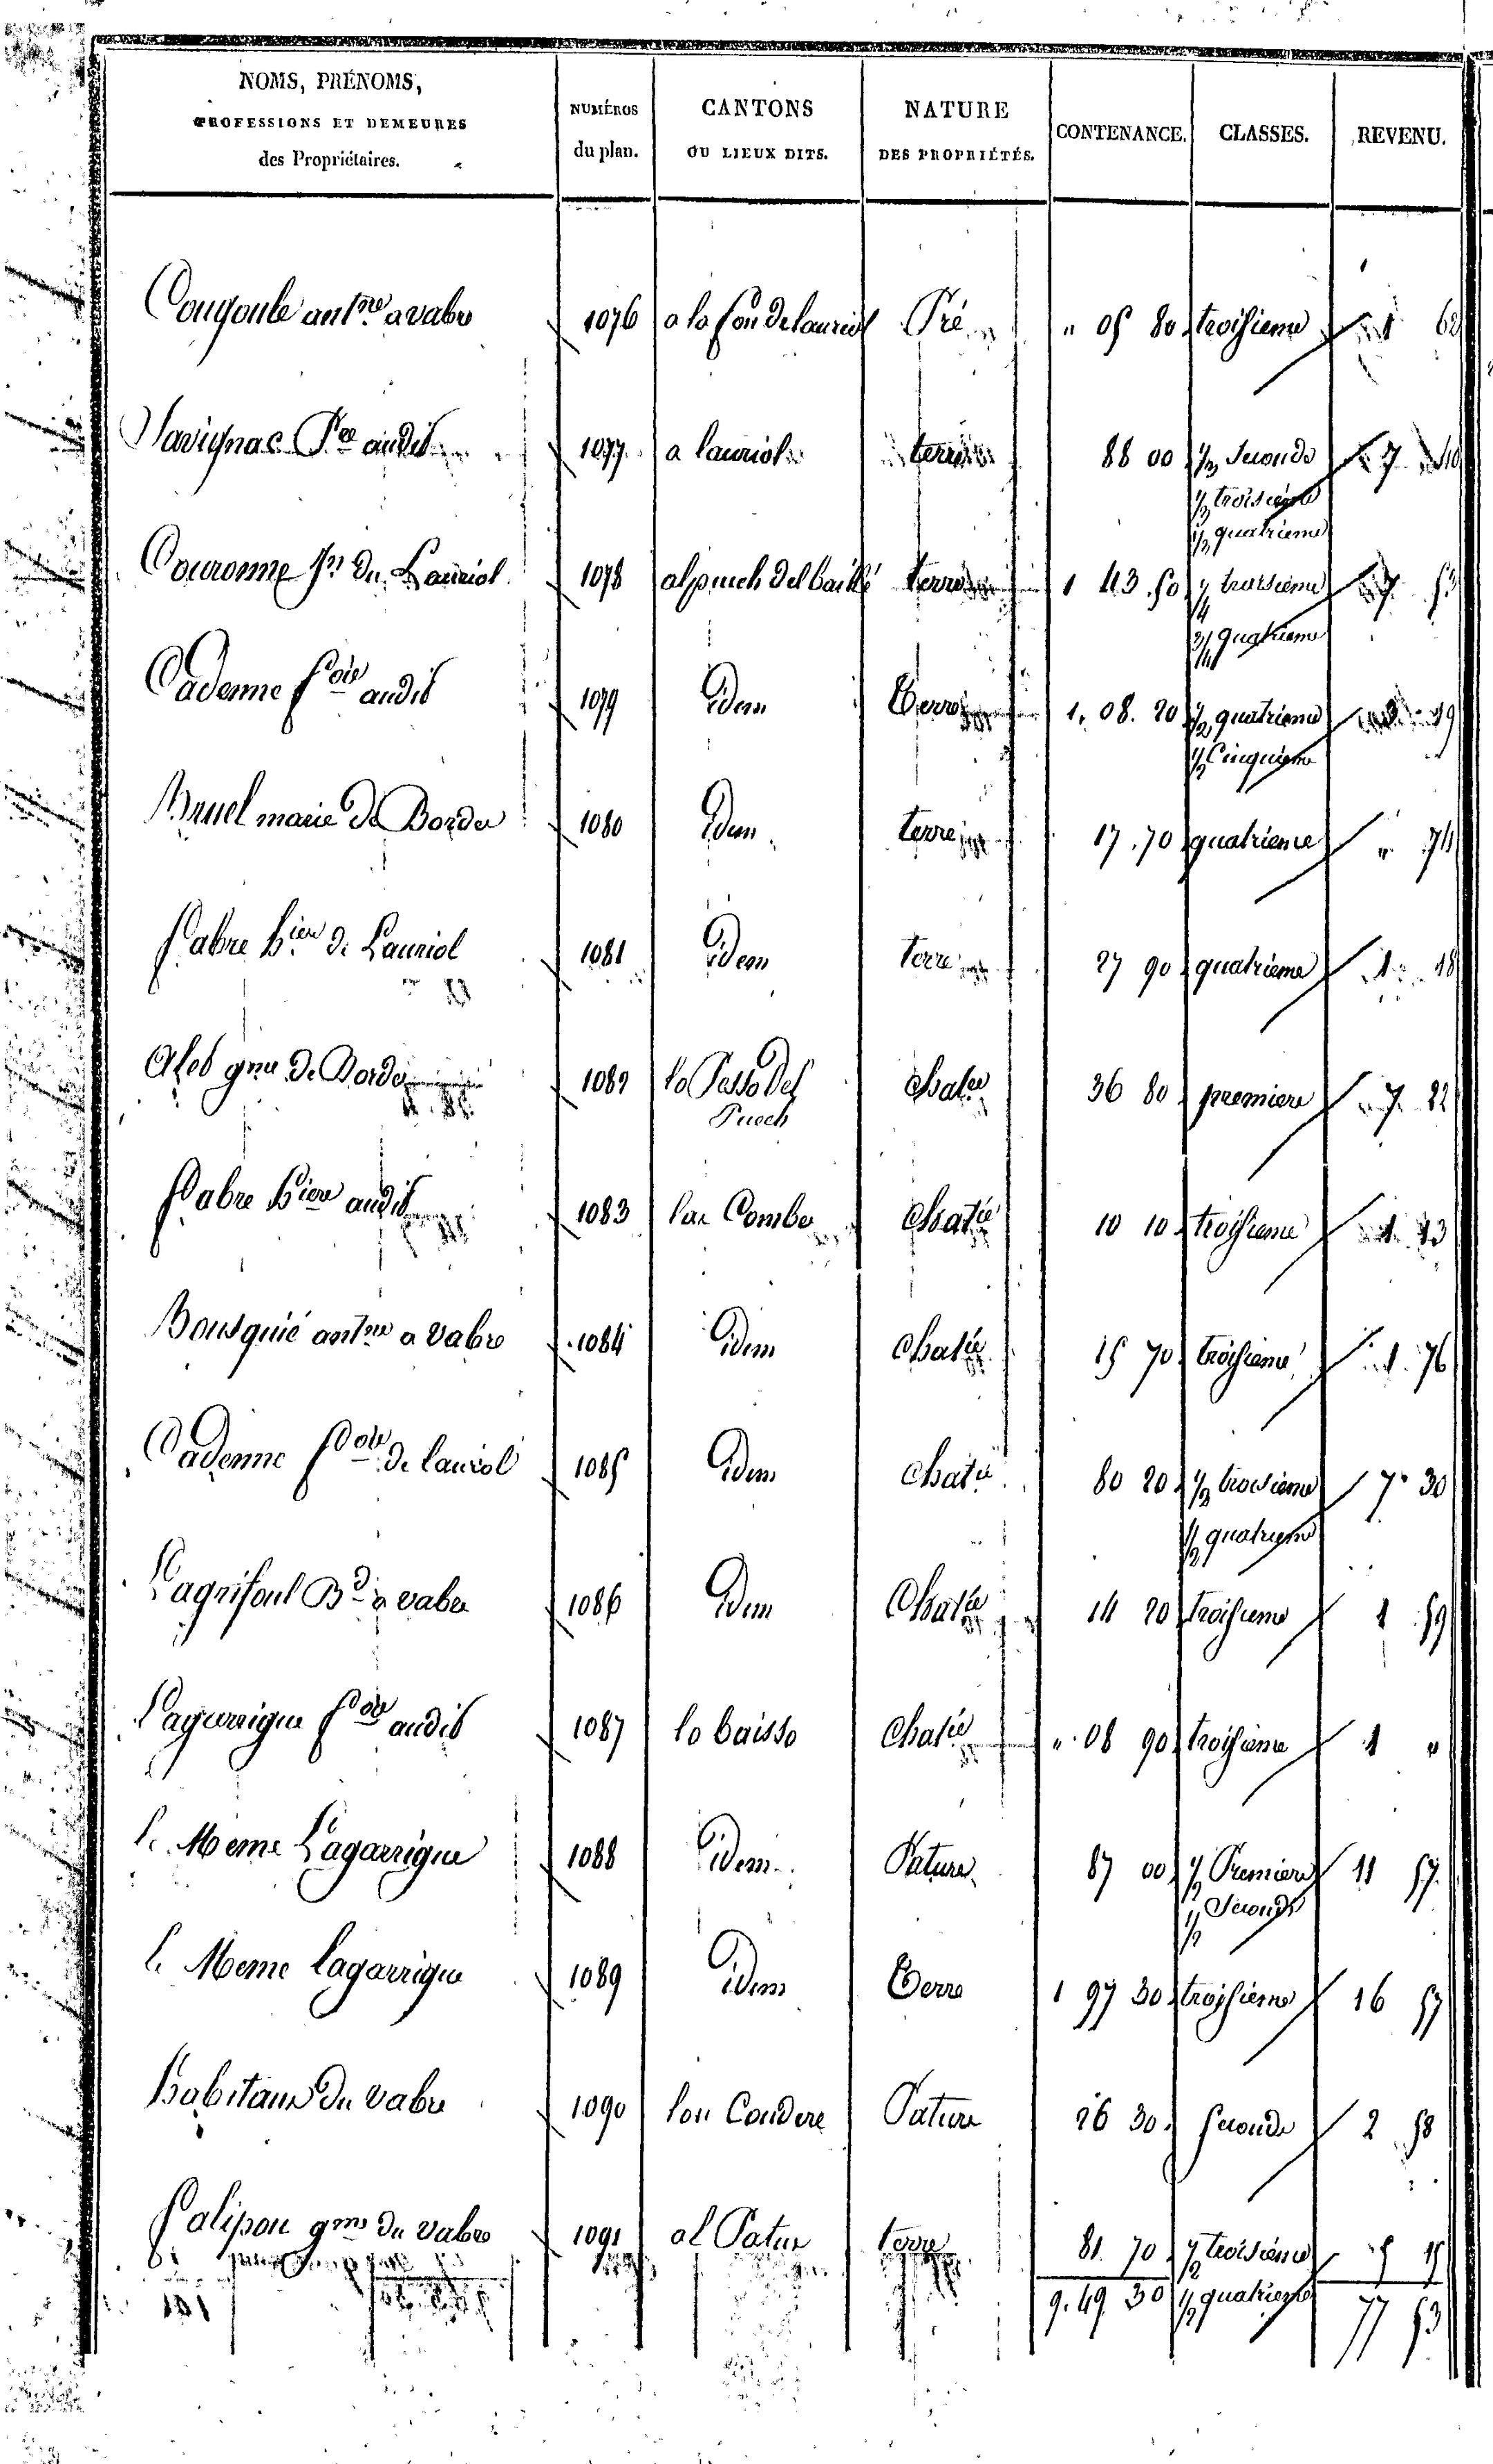 NOMS, PRÉNOMS,
PROFESSIONS ET DEMEURES
des Propriétaires.
NUMÉROS
du plan.
CANTONS
OU LIEUX DITS.
NATURE
DES PROPRIÉTÉS.
CONTENANCE.
CLASSES.
REVENU.
Cougoule antne a vabre 1076 a la fon de lauriol Pré " 05 80 troisieme 1 62
audit 1077 a lauriol terre 88 00 1/3 Seconde 7
1/3 troisieme
1/3 quatrieme
Couronne du Lauriol 1078 terre 1 43 50 1/4 troisieme 7 53
3/4 quatrieme
Cadenne fois audit 1079 idem Terre 1. 08. 20 1/2 quatrieme 19
1/2 Cinquieme
Bruel marie de Borde 1080 idem terre 17.70 quatrieme " 74
fabre de Lauriol 1081 idem terre 27 90 quatrieme 1 18
Alet gme de Borde 1082 lo Passo Del chatée 36 80 premiere 7 22
Puech
fabre audit 1083 las Combe chatée 10 10 troisieme 1 13
Bousquié antne a vabre 1084 idem chatée 15 70 troisieme 1.76
Cadenne fois de lauriol 1085 idem chatée 80 20 1/2 troisieme 7 30
1/2 quatrieme
Lagrifoul Bd a vabre 1086 idem Chatée 14 20 troisieme 1 59
Lagarrigue fois audit 1087 lo baisso Chatée " 08 90 troisieme 1 "
le Meme Lagarrigue 1088 idem Pature 87 00 1/2 Premiere 11 57
1/2 Seconde
le Meme lagarrigue 1089 idem Terre 1 97 30 troisieme 16 57
habitans du vabre 1090 lou Couderc Pature 26 30 seconde 2 58
Galipou gme du vabre 1091 al Patus terre 81 70 1/2 troisieme 5 15
9.49 30 1/2 quatrieme 77 53